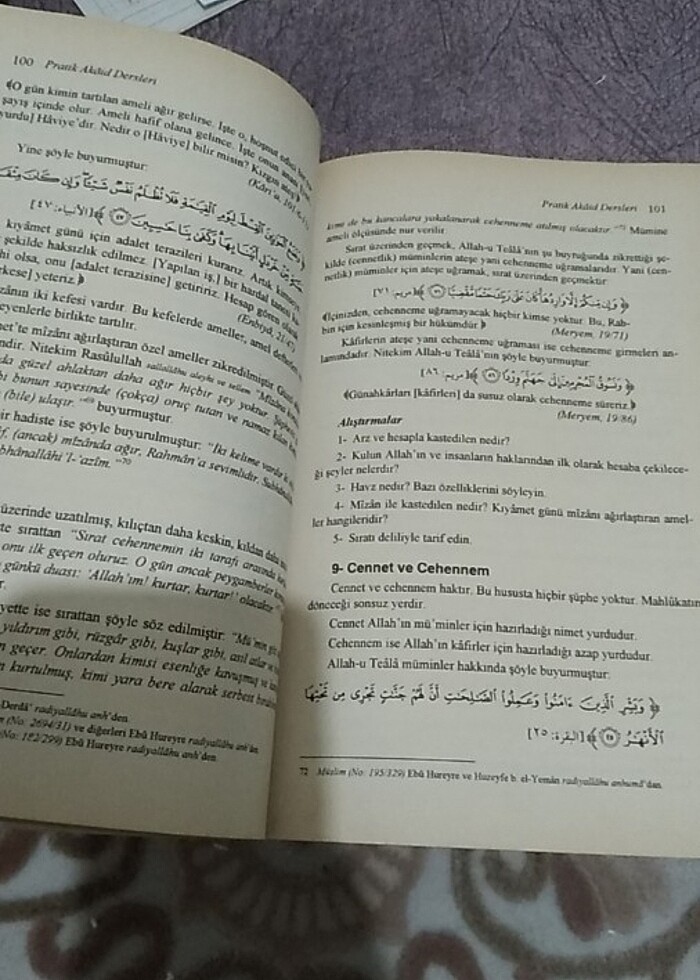 100 Pratik Akâid Dersleri
﴾O gün kimin tartılan ameli ağır gelirse. İşte o, hoşnut edici bir
yaşayış içinde olur. Ameli hafif olana gelince. İşte onun anası
yurdu] Hâviye'dir. Nedir o [Hâviye] bilir misin? Kızgın ateş﴿
(Kâri'a, 101/6-
Yine şöyle buyurmuştur:
وَنَضَعُ الْمَوَازِينَ الْقِسْطَ لِيَوْمِ الْقِيَامَةِ فَلَا تُظْلَمُ نَفْسٌ شَيْئًا وَإِن كَانَ مِثْقَالَ
حَبَّةٍ مِّنْ خَرْدَلٍ أَتَيْنَا بِهَا وَكَفَى بِنَا حَاسِبِينَ ﴿٤٧﴾ [الأنبياء: ٤٧]
kıyâmet günü için adalet terazileri kurarız. Artık kimseye
şekilde haksızlık edilmez. [Yapılan iş,] bir hardal tanesi
olsa, onu [adalet terazisine] getiririz. Hesap gören olarak
yeteriz.﴿ (Enbiyâ, 21/47)
iki kefesi vardır. Bu kefelerde ameller, amel defterleri
birlikte tartılır.
mîzânı ağırlaştıran özel ameller zikredilmiştir. Güzel
Nitekim Rasûlullah sallallâhu aleyhi ve sellem "Mîzâna
güzel ahlaktan daha ağır hiçbir şey yoktur. Şüphesiz
bunun sayesinde (çokça) oruç tutan ve namaz kılan
(bile) ulaşır."⁶⁹ buyurmuştur.
bir hadiste ise şöyle buyurulmuştur: "İki kelime vardır ki,
(ancak) mîzânda ağır, Rahmân'a sevimlidir. Subhânallâhi
'l-'azîm."⁷⁰
üzerinde uzatılmış, kılıçtan daha keskin, kıldan daha
sırattan "Sırat cehennemin iki tarafı arasında
onu ilk geçen oluruz. O gün ancak peygamberler
günkü duası: 'Allah'ım! kurtar, kurtar!' olacaktır."
ise sırattan şöyle söz edilmiştir: "Mü'min göz
yıldırım gibi, rüzgâr gibi, kuşlar gibi, asil atlar ve
geçer. Onlardan kimisi esenliğe kavuşmuş ve
kurtulmuş, kimi yara bere alarak serbest bırakılmış
Derdâ' radıyallâhu anh'den.
(No: 2694/31) ve diğerleri Ebû Hureyre radıyallâhu anh'den.
(No: 182/299) Ebû Hureyre radıyallâhu anh'den.
Pratik Akâid Dersleri 101
kimi de bu kancalara yakalanarak cehenneme atılmış olacaktır."⁷² Mümine
ameli ölçüsünde nur verilir.
Sırat üzerinden geçmek, Allah-u Teâlâ'nın şu buyruğunda zikrettiği şe-
kilde (cennetlik) müminlerin ateşe yani cehenneme uğramalarıdır. Yani (cen-
netlik) müminler için ateşe uğramak, sırat üzerinden geçmektir.
﴿ وَإِن مِّنكُمْ إِلَّا وَارِدُهَا كَانَ عَلَى رَبِّكَ حَتْمًا مَّقْضِيًّا ﴿٧١﴾﴾ [مريم: ٧١]
﴾İçinizden, cehenneme uğramayacak hiçbir kimse yoktur. Bu, Rab-
bin için kesinleşmiş bir hükümdür.﴿ (Meryem, 19/71)
Kâfirlerin ateşe yani cehenneme uğraması ise cehenneme girmeleri an-
lamındadır. Nitekim Allah-u Teâlâ'nın şöyle buyurmuştur:
﴿ وَنَسُوقُ الْمُجْرِمِينَ إِلَى جَهَنَّمَ وِرْدًا ﴿٨٦﴾﴾ [مريم: ٨٦]
﴾Günahkârları [kâfirleri] da susuz olarak cehenneme süreriz.﴿
(Meryem, 19/86)
Alıştırmalar
1- Arz ve hesapla kastedilen nedir?
2- Kulun Allah'ın ve insanların haklarından ilk olarak hesaba çekilece-
ği şeyler nelerdir?
3- Havz nedir? Bazı özelliklerini söyleyin.
4- Mîzân ile kastedilen nedir? Kıyâmet günü mîzânı ağırlaştıran amel-
ler hangileridir?
5- Sıratı deliliyle tarif edin.
9- Cennet ve Cehennem
Cennet ve cehennem haktır. Bu hususta hiçbir şüphe yoktur. Mahlûkatın
döneceği sonsuz yerdir.
Cennet Allah'ın mü'minler için hazırladığı nimet yurdudur.
Cehennem ise Allah'ın kâfirler için hazırladığı azap yurdudur.
Allah-u Teâlâ müminler hakkında şöyle buyurmuştur:
﴿ وَبَشِّرِ الَّذِينَ ءَامَنُوا وَعَمِلُوا الصَّالِحَاتِ أَنَّ لَهُمْ جَنَّاتٍ تَجْرِي مِن تَحْتِهَا
الْأَنْهَارُ ﴿٢٥﴾﴾ [البقرة: ٢٥]
72 Müslim (No: 195/329) Ebû Hureyre ve Huzeyfe b. el-Yemân radıyallâhu anhumâ'dan.